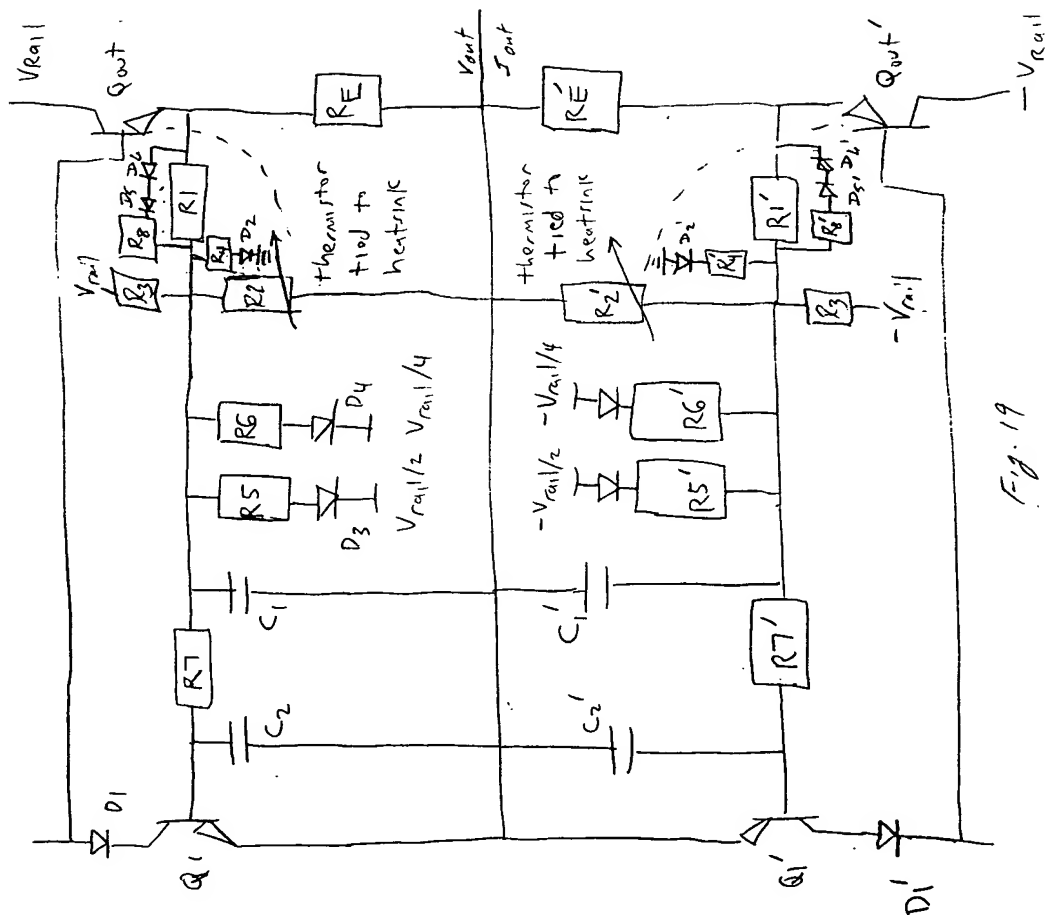 VRail
Qout
RE
Vout
Iout
RE'
Qout'
-VRail
D6
D5
R8
R1
R4
D2
Vrail
R3
R2
thermistor
tied to
heatsink
thermistor
tied to
heatsink
R2'
D2'
R4'
R1'
D6'
D5'
R8'
R3
-Vrail
R6
D4
Vrail/4
R5
D3
Vrail/2
-Vrail/4
R6'
-Vrail/2
R5'
C1
C1'
R7
R7'
C2
C2'
D1
Q1
Q1'
D1'
Fig. 19